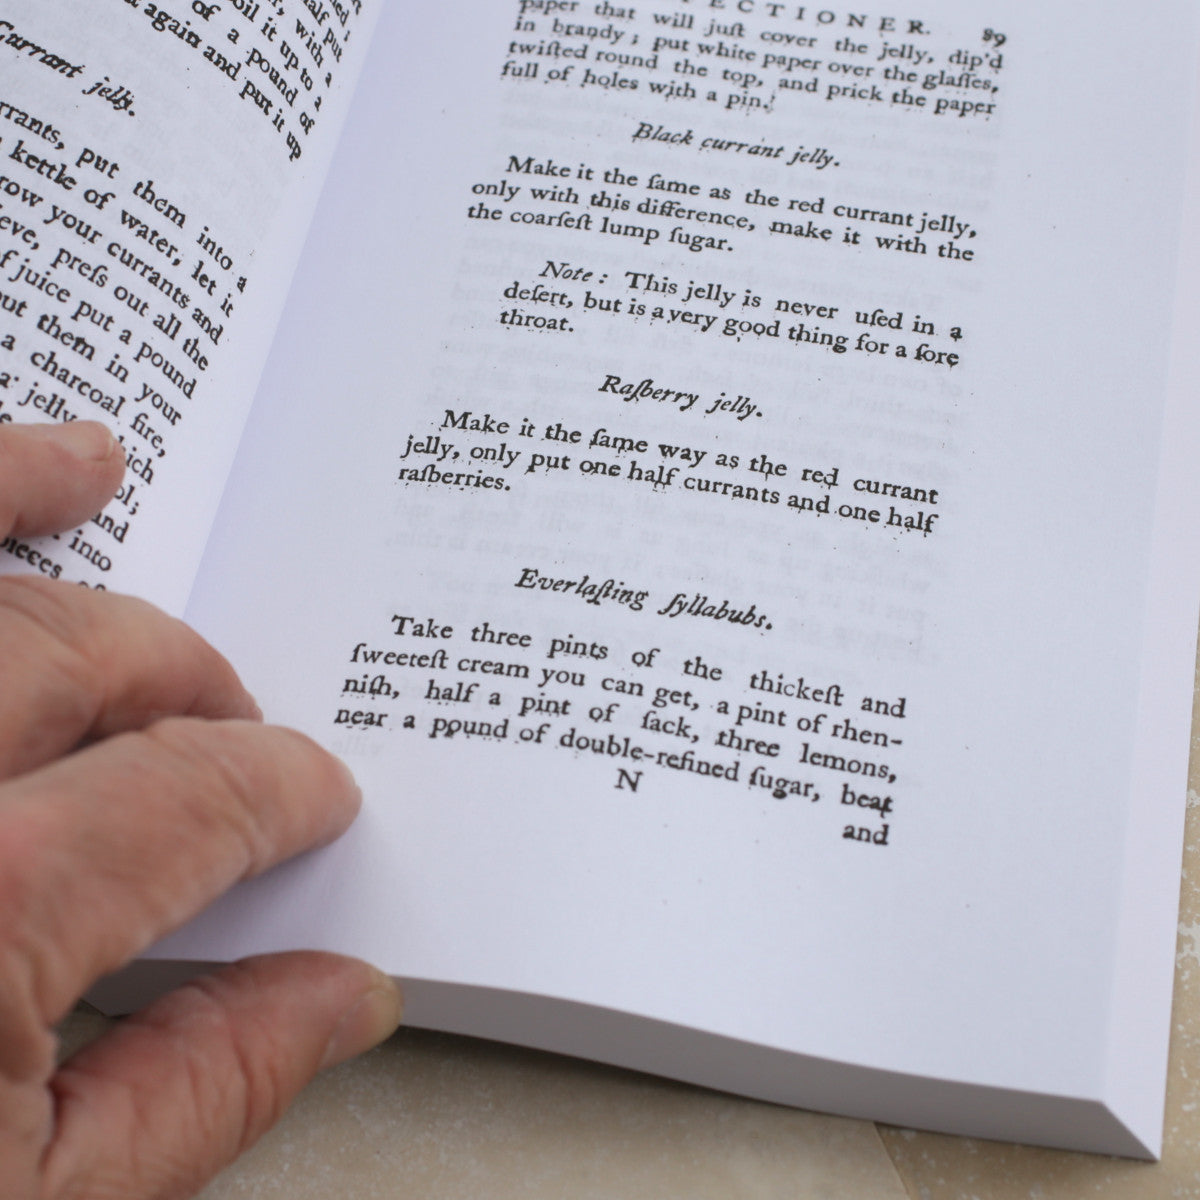 alf put
with a
oil it up to a
of a pound of
again and put it up
Currant jelly.
rrants, put them into a
kettle of water, let it
row your currants and
eve, preſs out all the
f juice put a pound
ut them in your
a charcoal fire,
a jelly which
ol;
and
into
pieces of
ECTIONER. 89
paper that will juſt cover the jelly, dip'd
in brandy; put white paper over the glaſſes,
twiſted round the top, and prick the paper
full of holes with a pin.
Black currant jelly.
Make it the ſame as the red currant jelly,
only with this difference, make it with the
the coarſeſt lump ſugar.
Note: This jelly is never uſed in a
deſert, but is a very good thing for a ſore
throat.
Raſberry jelly.
Make it the ſame way as the red currant
jelly, only put one half currants and one half
raſberries.
Everlaſting ſyllabubs.
Take three pints of the thickeſt and
ſweeteſt cream you can get, a pint of rhen-
niſh, half a pint of ſack, three lemons,
near a pound of double-refined ſugar, beat
N
and